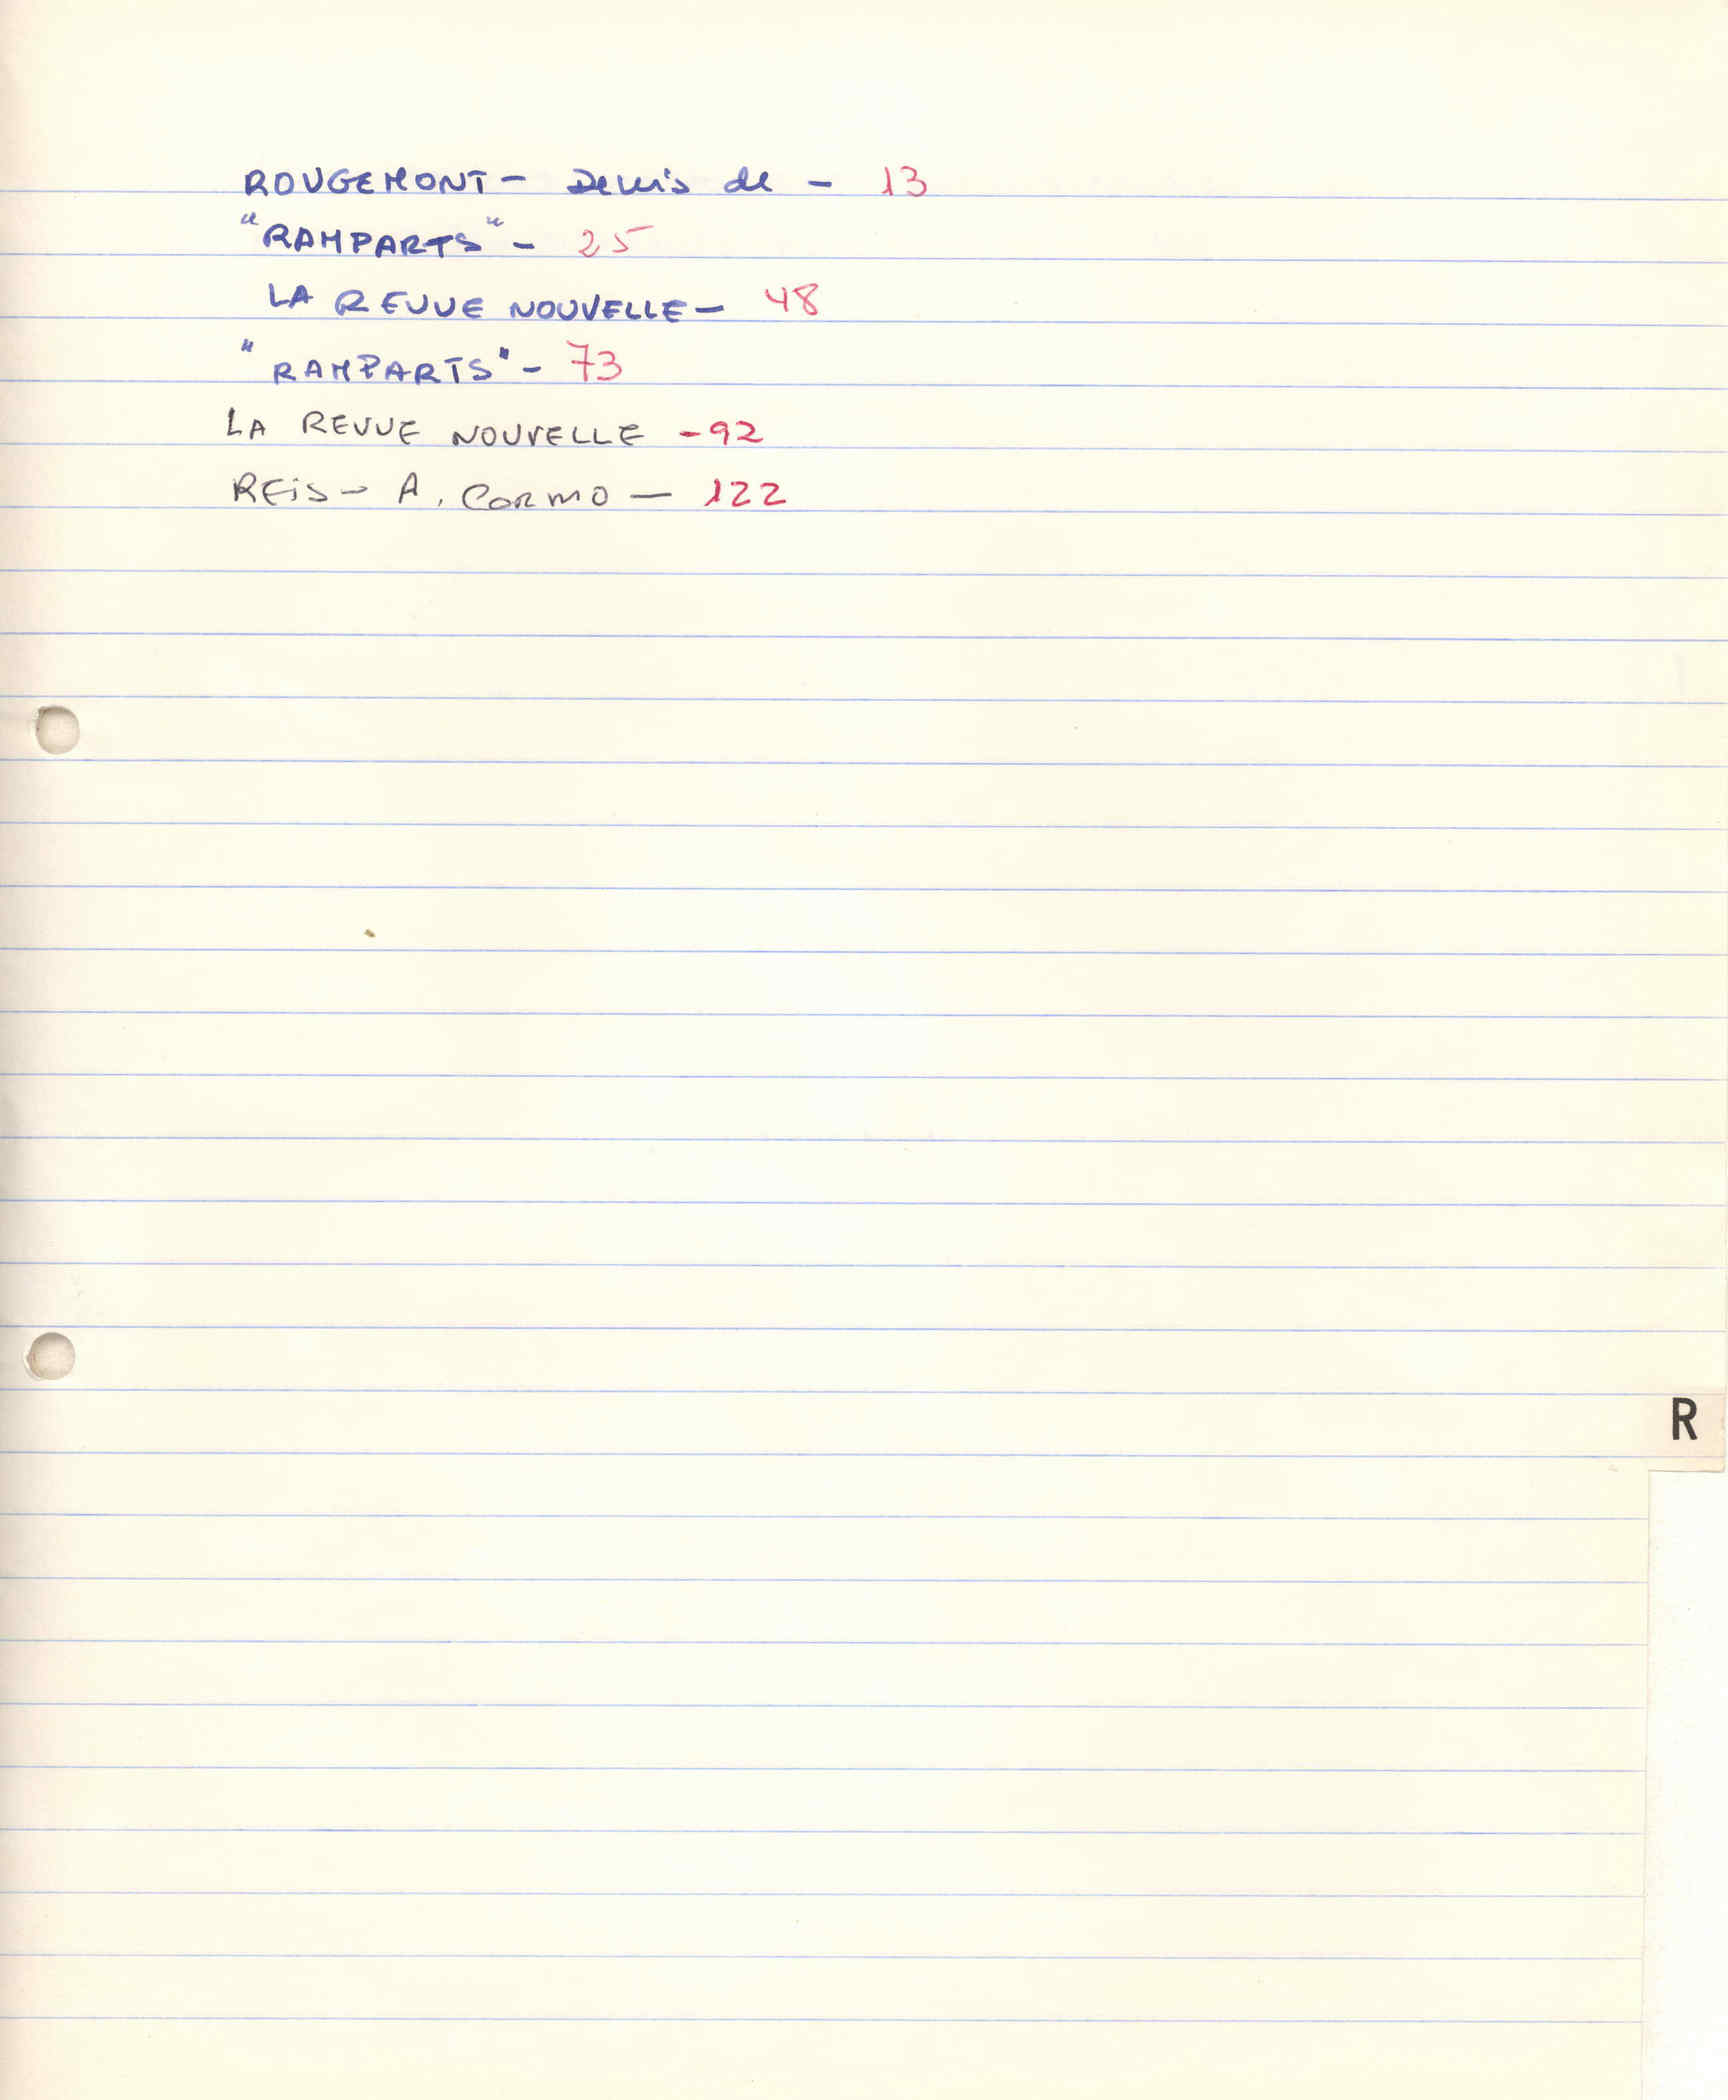 ROUGEMONT - Denis de - 13
"RAMPARTS" - 25
LA REVUE NOUVELLE - 48
"RAMPARTS" - 73
LA REVUE NOUVELLE - 92
REiS - A. CARMO - 122
R